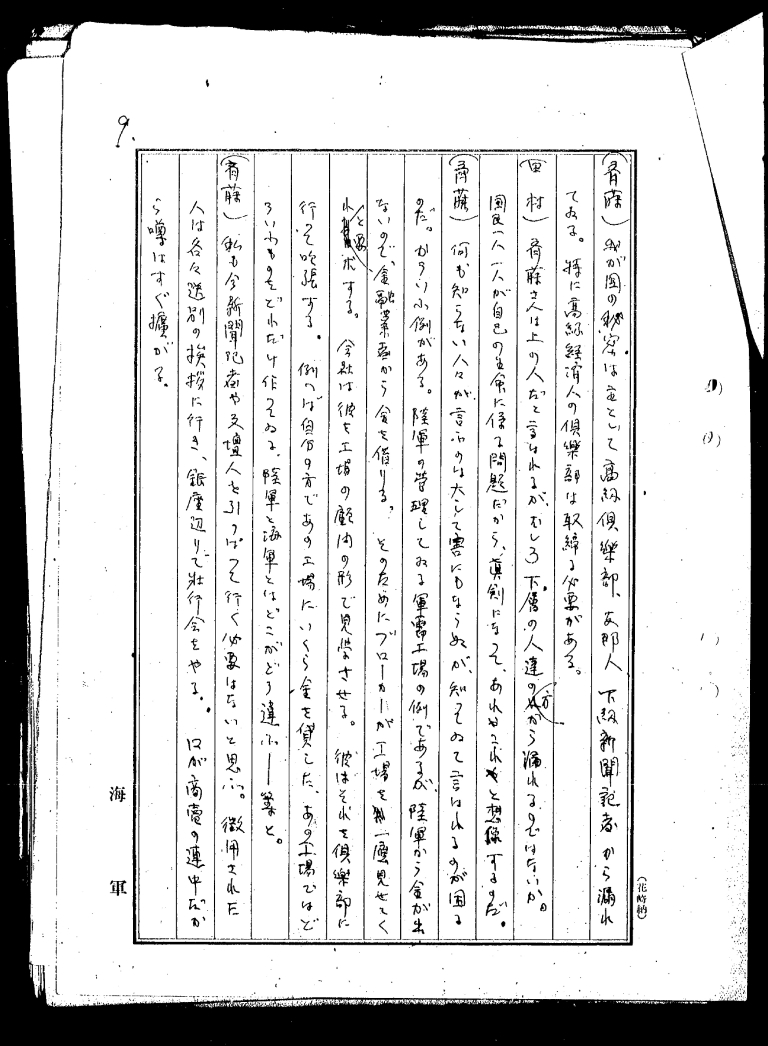 9.
(斉藤) 我が国の秘密は主として高級倶楽部、支那人 下級新聞記者から漏れ
てゐる。特に高級経済人の倶楽部は取締る必要がある。
(田村) 斉藤さんは上の人だと言はれるが、むしろ下層の人達の方から漏れるのではないか。
国民一人一人が自己の生命に係る問題だから、真剣になって、あれやこれやと想像するのだ。
(斉藤) 何も知らない人々が言ふのは大して害にもならぬが、知ってゐて言はれるのが困る
のだ。かういふ例がある。陸軍の管理してゐる軍需工場の例であるが、陸軍から金が出
ないので、金融業者から金を借りる。そのためにブローカーが工場を一度見せてく
れと要求する。会社は彼を工場の顧問の形で見学させる。彼はそれを倶楽部に
行って吹張する。例へば自分の方であの工場にいくら金を貸した、あの工場ではど
ういふものをどれだけ作ってゐる、陸軍と海軍とはどこがどう違ふ─等と。
(斉藤) 私も今新聞記者や文壇人を引っぱって行く必要はないと思ふ。徴用された
人は各々送別の挨拶に行き、銀座辺りで壮行会をやる。口が商売の連中だか
ら噂はすぐ擴がる。
海軍
(花崎納)